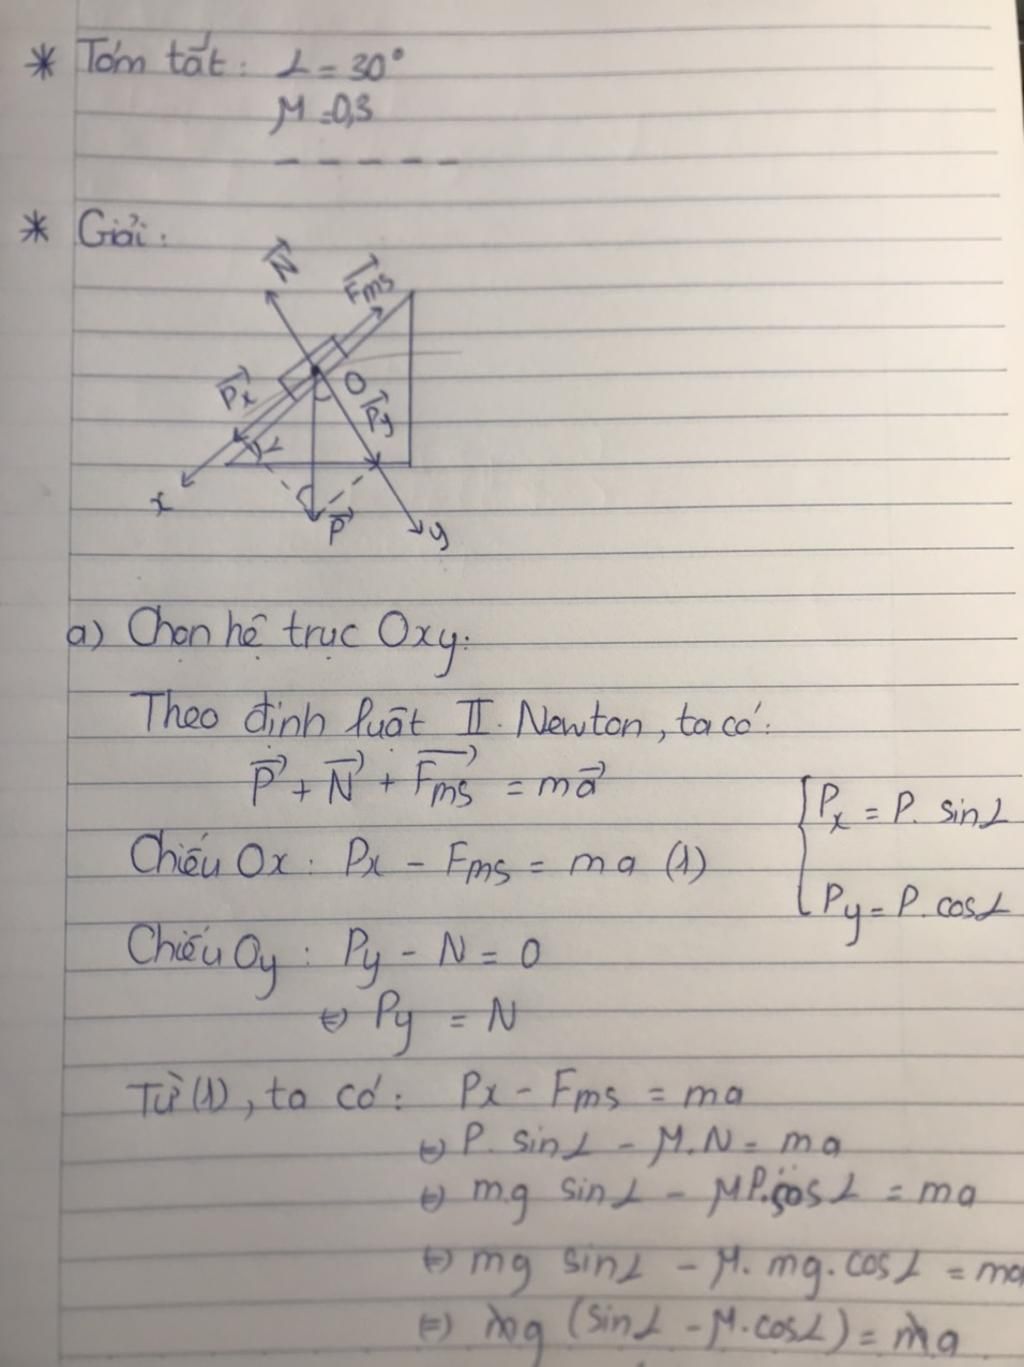 * Tóm tắt: α = 30°
μ = 0,3
- - - - -
* Giải:
N⃗
F⃗ms
P⃗x
O
P⃗y
α
x
P⃗
y
a) Chọn hệ trục Oxy.
Theo định luật II Newton, ta có:
P⃗ + N⃗ + F⃗ms = ma⃗
{ Px = P. sinα
Chiếu Ox : Px - Fms = ma (1)
Py = P. cosα
Chiếu Oy : Py - N = 0
⇔ Py = N
Từ (1), ta có: Px - Fms = ma
⇔ P. sinα - μ.N = ma
⇔ mg sinα - μP.cosα = ma
⇔ mg sinα - μ. mg. cosα = ma
⇔ mg (sinα - μ.cosα) = ma